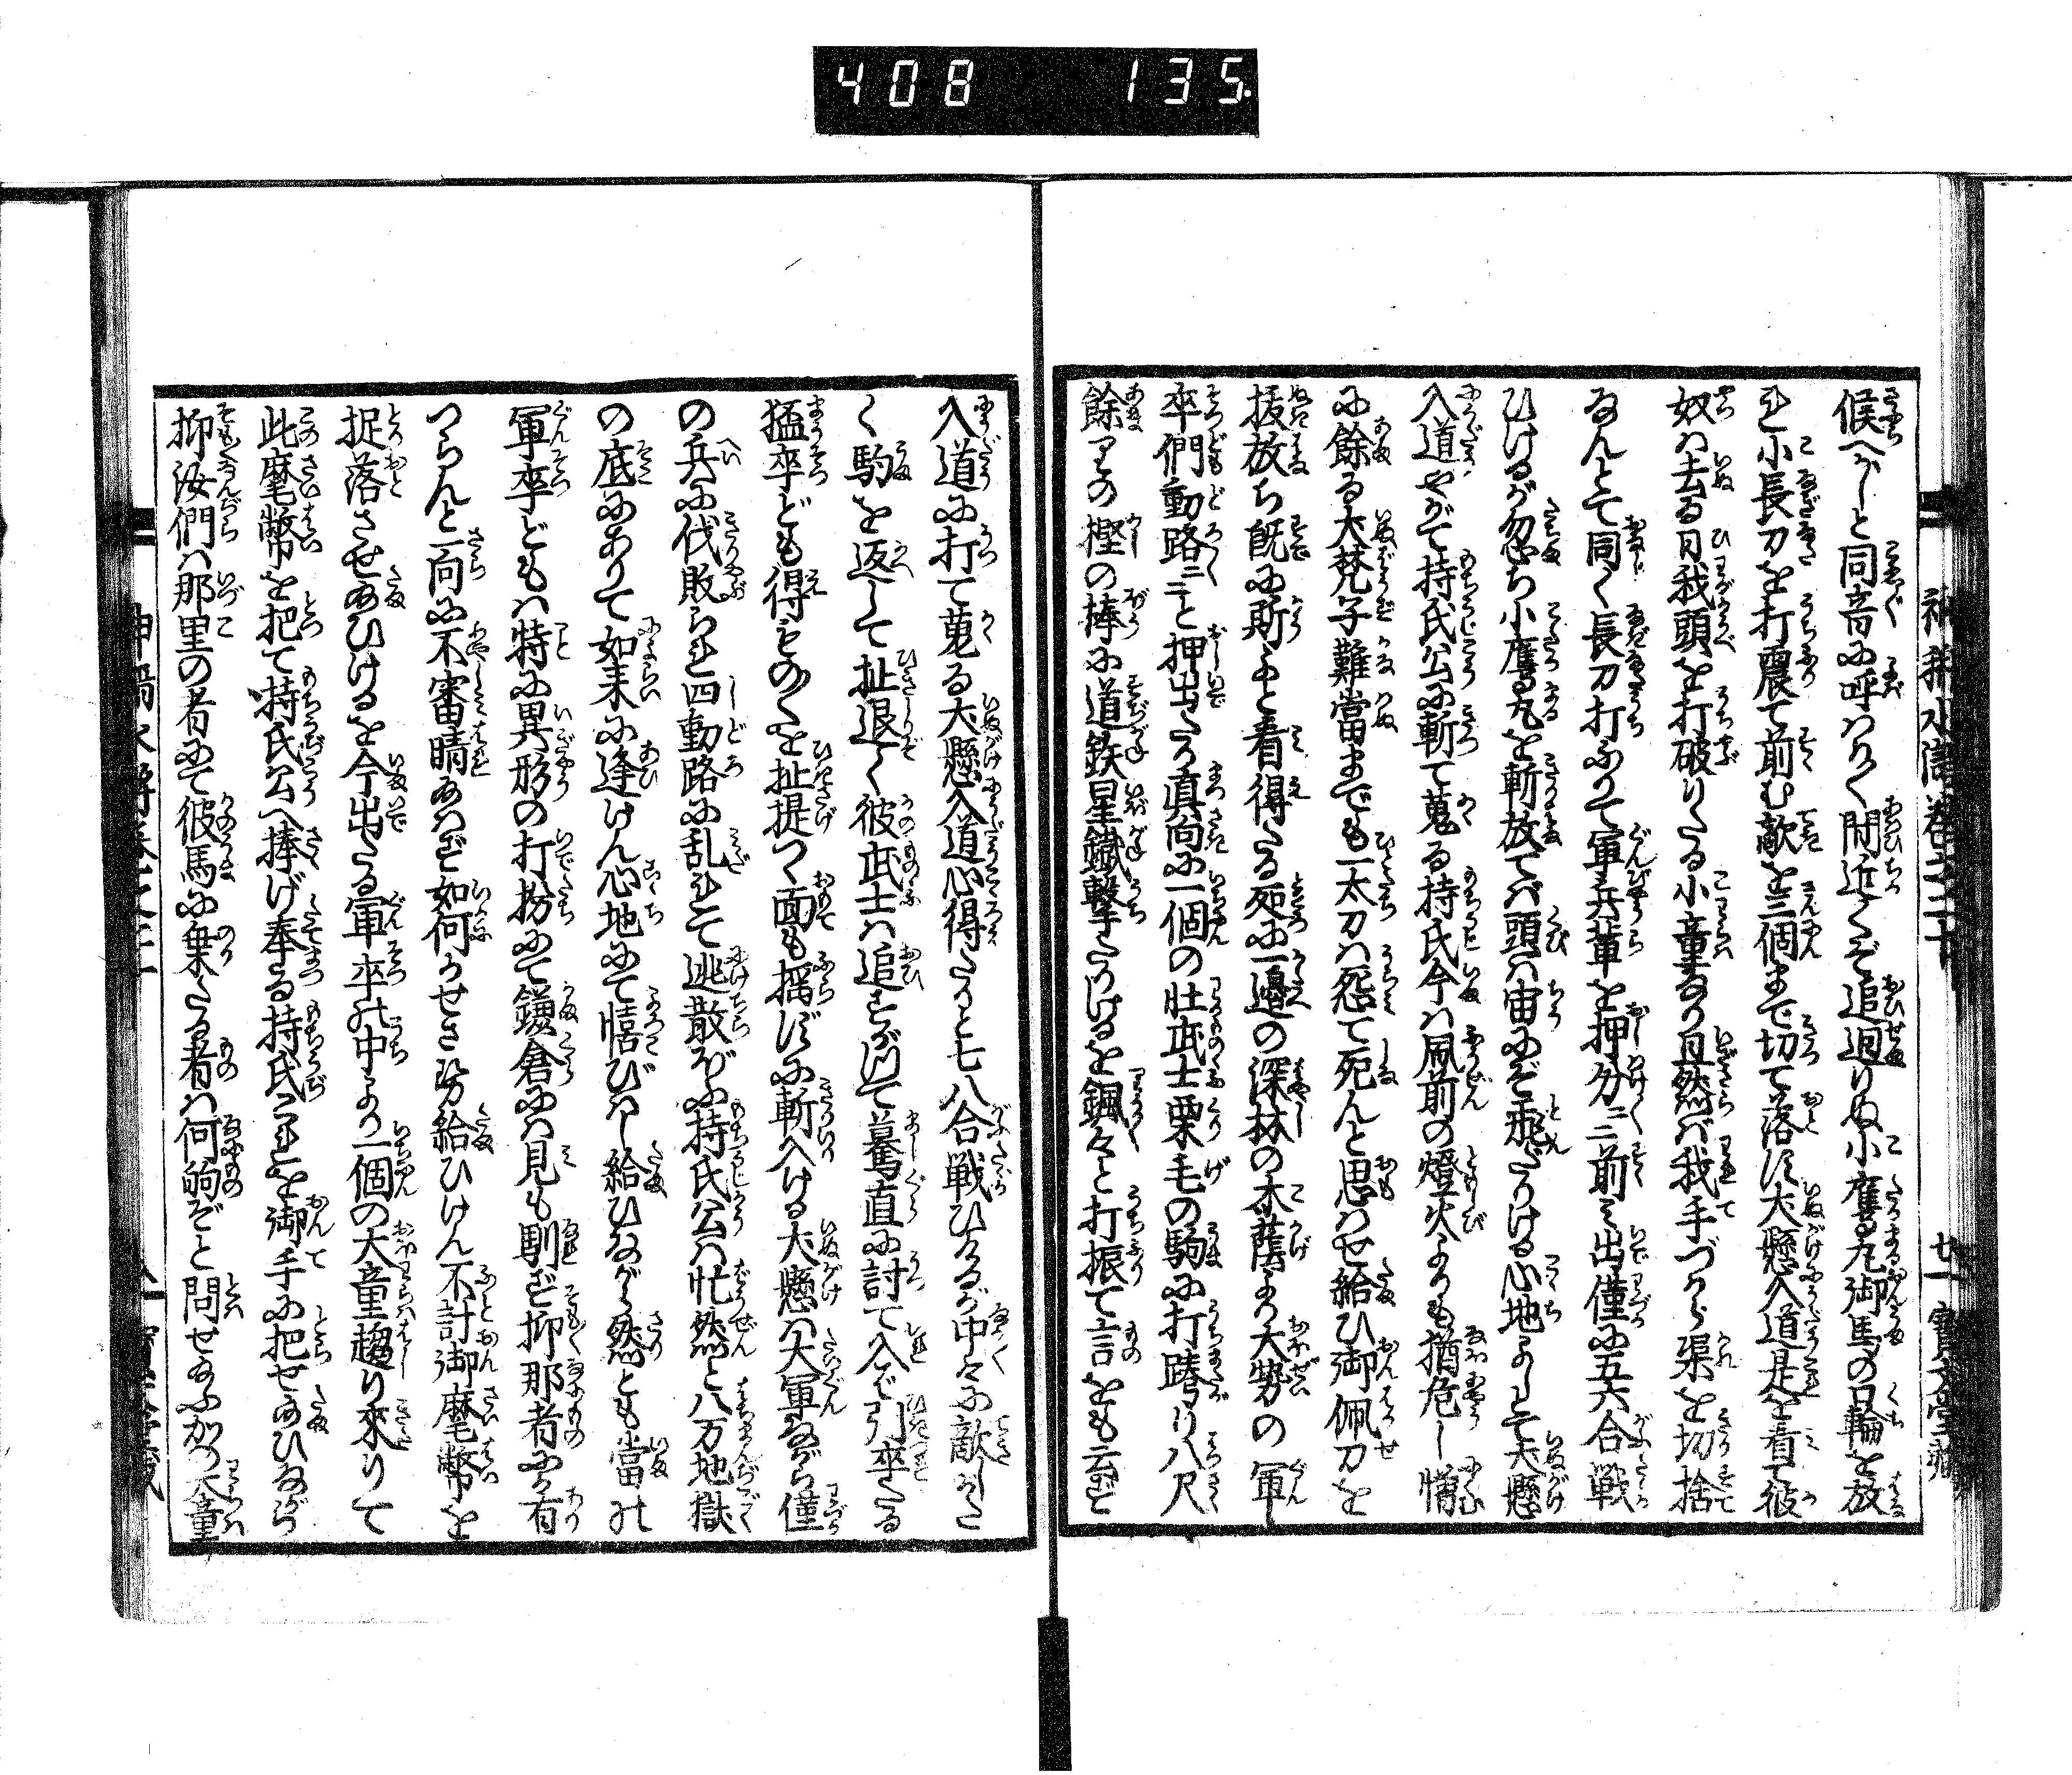 408 135.
候へかしと同音に呼はりく間近くぞ追廻りぬ小鷹丸御馬の口輪を放
れ小長刀を打震て前む敵を三個まで切て落に犬懸入道是を看て彼
奴は去る日我頭を打破りたる小童なり且然ば我手づから渠を切捨
なんとて同く長刀打ふりて軍兵輩を押分々々前み出僅に五六合戦
ひけるが忽ち小鷹丸を斬放てバ頭は宙にぞ飛だりける心地よしとて犬懸
入道やがて持氏公に斬て蒐る持氏今は風前の燈火よりも猶危し憎
に餘る犬梵子難當までも一太刀は怨て死んと思はせ給ひ御佩刀を
抜放ち既に斯よと看得たる処に一邊の深林の木蔭より大勢の軍
卒們動路々々と押出たる真向に一個の壮武士栗毛の駒に打跨り八尺
餘りの樫の棒に道鉄星鐵撃たりけるを颯々と打振て言をも云ず
入道に打て蒐る犬懸入道心得たりと七八合戦ひたるが中々に敵した
く駒を返して扯退く彼武士は追すがひて驀直に討て入ど引卒たる
猛卒ども得ものくを扯提つ面も揺ずに斬入ける犬懸は大軍ながら僅
の兵に伐敗られ四動路に乱れて逃散ば持氏公は忙然と八万地獄
の底にありて如来に逢けん心地にて憘びは給ひながら然とも當れ
軍卒どもは特に異形の打扮にて鎌倉には見も馴ず抑那者にか有
つらんと一向に不審晴あはず如何かせさ勢給ひけん不計御麾幣を
捉落させ給ひけるを今出たる軍卒れ中より一個の大童趨り來りて
此麾幣を把て持氏公へ捧げ奉る持氏これを御手に把せ給ひながら
抑汝們は那里の者にて彼馬に乗たる者は何的ぞと問せ給ふかの大童